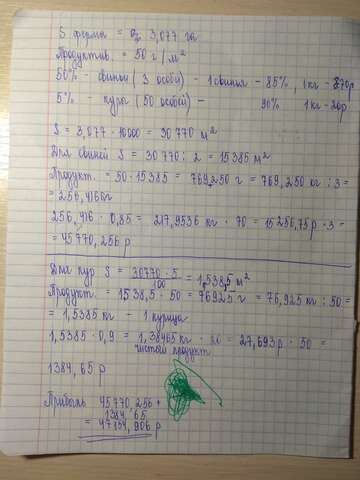 S ферма = 3,077 га
Продуктив. = 50 г / м²
50% - свиньи (3 особи) - 1 свинья - 85%, 1кг - 70р
5% куры (50 особей) - 90% 1кг - 20р
S = 3,077 · 10000 = 30 770 м²
Для свиней S = 30770 : 2 = 15385 м²
Продукт. = 50 · 15385 = 769250 г = 769,250 кг : 3 =
= 256,416 кг
256,416 · 0,85 = 217,9536 кг · 70 = 15256,75р · 3 =
= 45770,256 р
Для кур S = 30770 · 5 / 100 = 1538,5 м²
Продукт. = 1538,5 · 50 = 76925 г = 76,925 кг : 50 =
= 1,5385 кг - 1 курица
1,5385 · 0,9 = 1,38465 кг · 20 = 27,693р · 50 =
чистый продукт
1384,65 р
Прибыль 45770,256 +
1384,65
= 47154,906 р